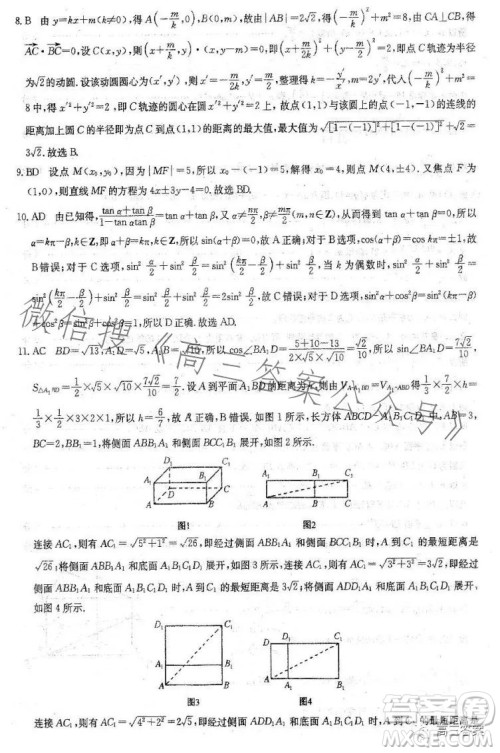 8. B 由 y=kx+m(k≠0),得 A(-m/k,0),B(0,m),由|AB|=2√2,得(-m/k)²+m²=8,由 CA⊥CB,得
AC·BC=0,设 C(x,y),则(x+m/k)·x+y(y-m)=0,即(x+m/2k)²+(y-m/2)²=2,因此点 C 轨迹为半径
为√2的动圆.设该动圆圆心为(x′,y′),则有 x′=-m/2k,y′=m/2,整理得 k=-y′/x′,m=2y′,代入(-m/k)²+m²=
8中,得 x′²+y′²=2,即 C 轨迹的圆心在圆 x′²+y′²=2 上,故点(1,1)与该圆上的点(-1,-1)的连线的
距离加上圆 C 的半径即为点 C 到点(1,1)的距离的最大值,最大值为√[1-(-1)]²+[1-(-1)]²+√2=
3√2.故选 B.
9. BD 设点 M(x₀,y₀),因为|MF|=5,所以 x₀-(-1)=5,解得 x₀=4,则点 M(4,±4).又焦点 F 为
(1,0),则直线 MF 的方程为 4x±3y-4=0.故选 BD.
10. AD 由已知得,
α=kπ-β,k∈Z,即 α+β=kπ,k∈Z,所以 sin(α+β)=0.所以 A 选项正确;对于 B 选项,cos(α+β)=cos kπ=±1,所
以 B 错误;对于 C 选项,
所以 C 错误;对于 D 选项,
故选 AD.
11. AC BD=√13,A₁B=√5,A₁D=√10,所以 cos∠BA₁D=(5+10-13)/(2×√5×√10)=√2/10,所以 sin∠BA₁D=7√2/10,所以
S△A₁BD=1/2×√5×√10×7√2/10=7/2.设 A 到平面 A₁BD 的距离为 h,则有
1/3×1/2×3×2×1,所以 h=6/7,故 A 正确,B 错误;长方体 ABCD-A₁B₁C₁D₁ 中,AB=
3,BC=2,BB₁=1,将侧面 ABB₁A₁ 和侧面 BCC₁B₁ 展开,如图 2 所示.
D₁ C₁ A₁ B₁ D C A B
A₁ B₁ C₁ A B C
图1 图2
连接 AC₁,则有 AC₁=√5²+1²=√26,即经过侧面 ABB₁A₁ 和侧面 BCC₁B₁ 时,A 到 C₁ 的最短距离是
√26;将侧面 ABB₁A₁ 和底面 A₁B₁C₁D₁ 展开,如图 3 所示,连接 AC₁,则有 AC₁=√3²+3²=3√2,即经
过侧面 ABB₁A₁ 和底面 A₁B₁C₁D₁ 时,A 到 C₁ 的最短距离是 3√2;将侧面 ADD₁A₁ 和底面 A₁B₁C₁D₁ 展
开,如图 4 所示.
D₁ C₁ A₁ B₁ A B
D D₁ C₁ A A₁ B₁
图3 图4
连接 AC₁,则有 AC₁=√4²+2²=2√5,即经过侧面 ADD₁A₁ 和底面 A₁B₁C₁D₁ 时,A 到 C₁ 的最短距离是
微信搜《高三答案公众号》